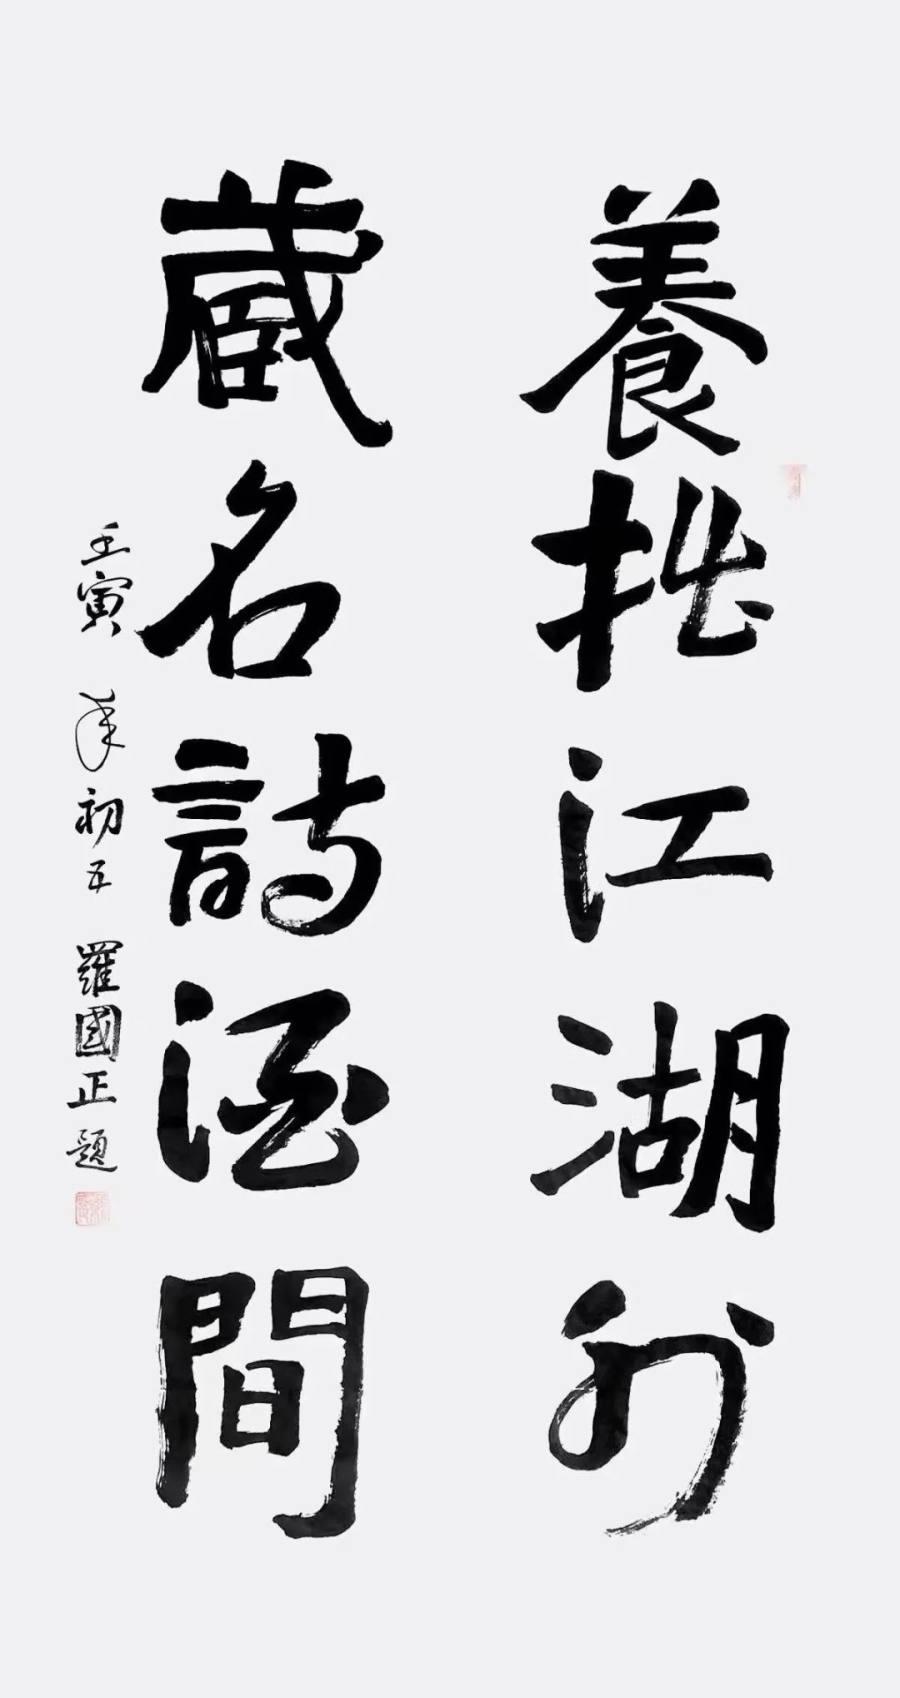 養拙江湖外
蔵名詩酒間
壬寅年初五 羅國正題